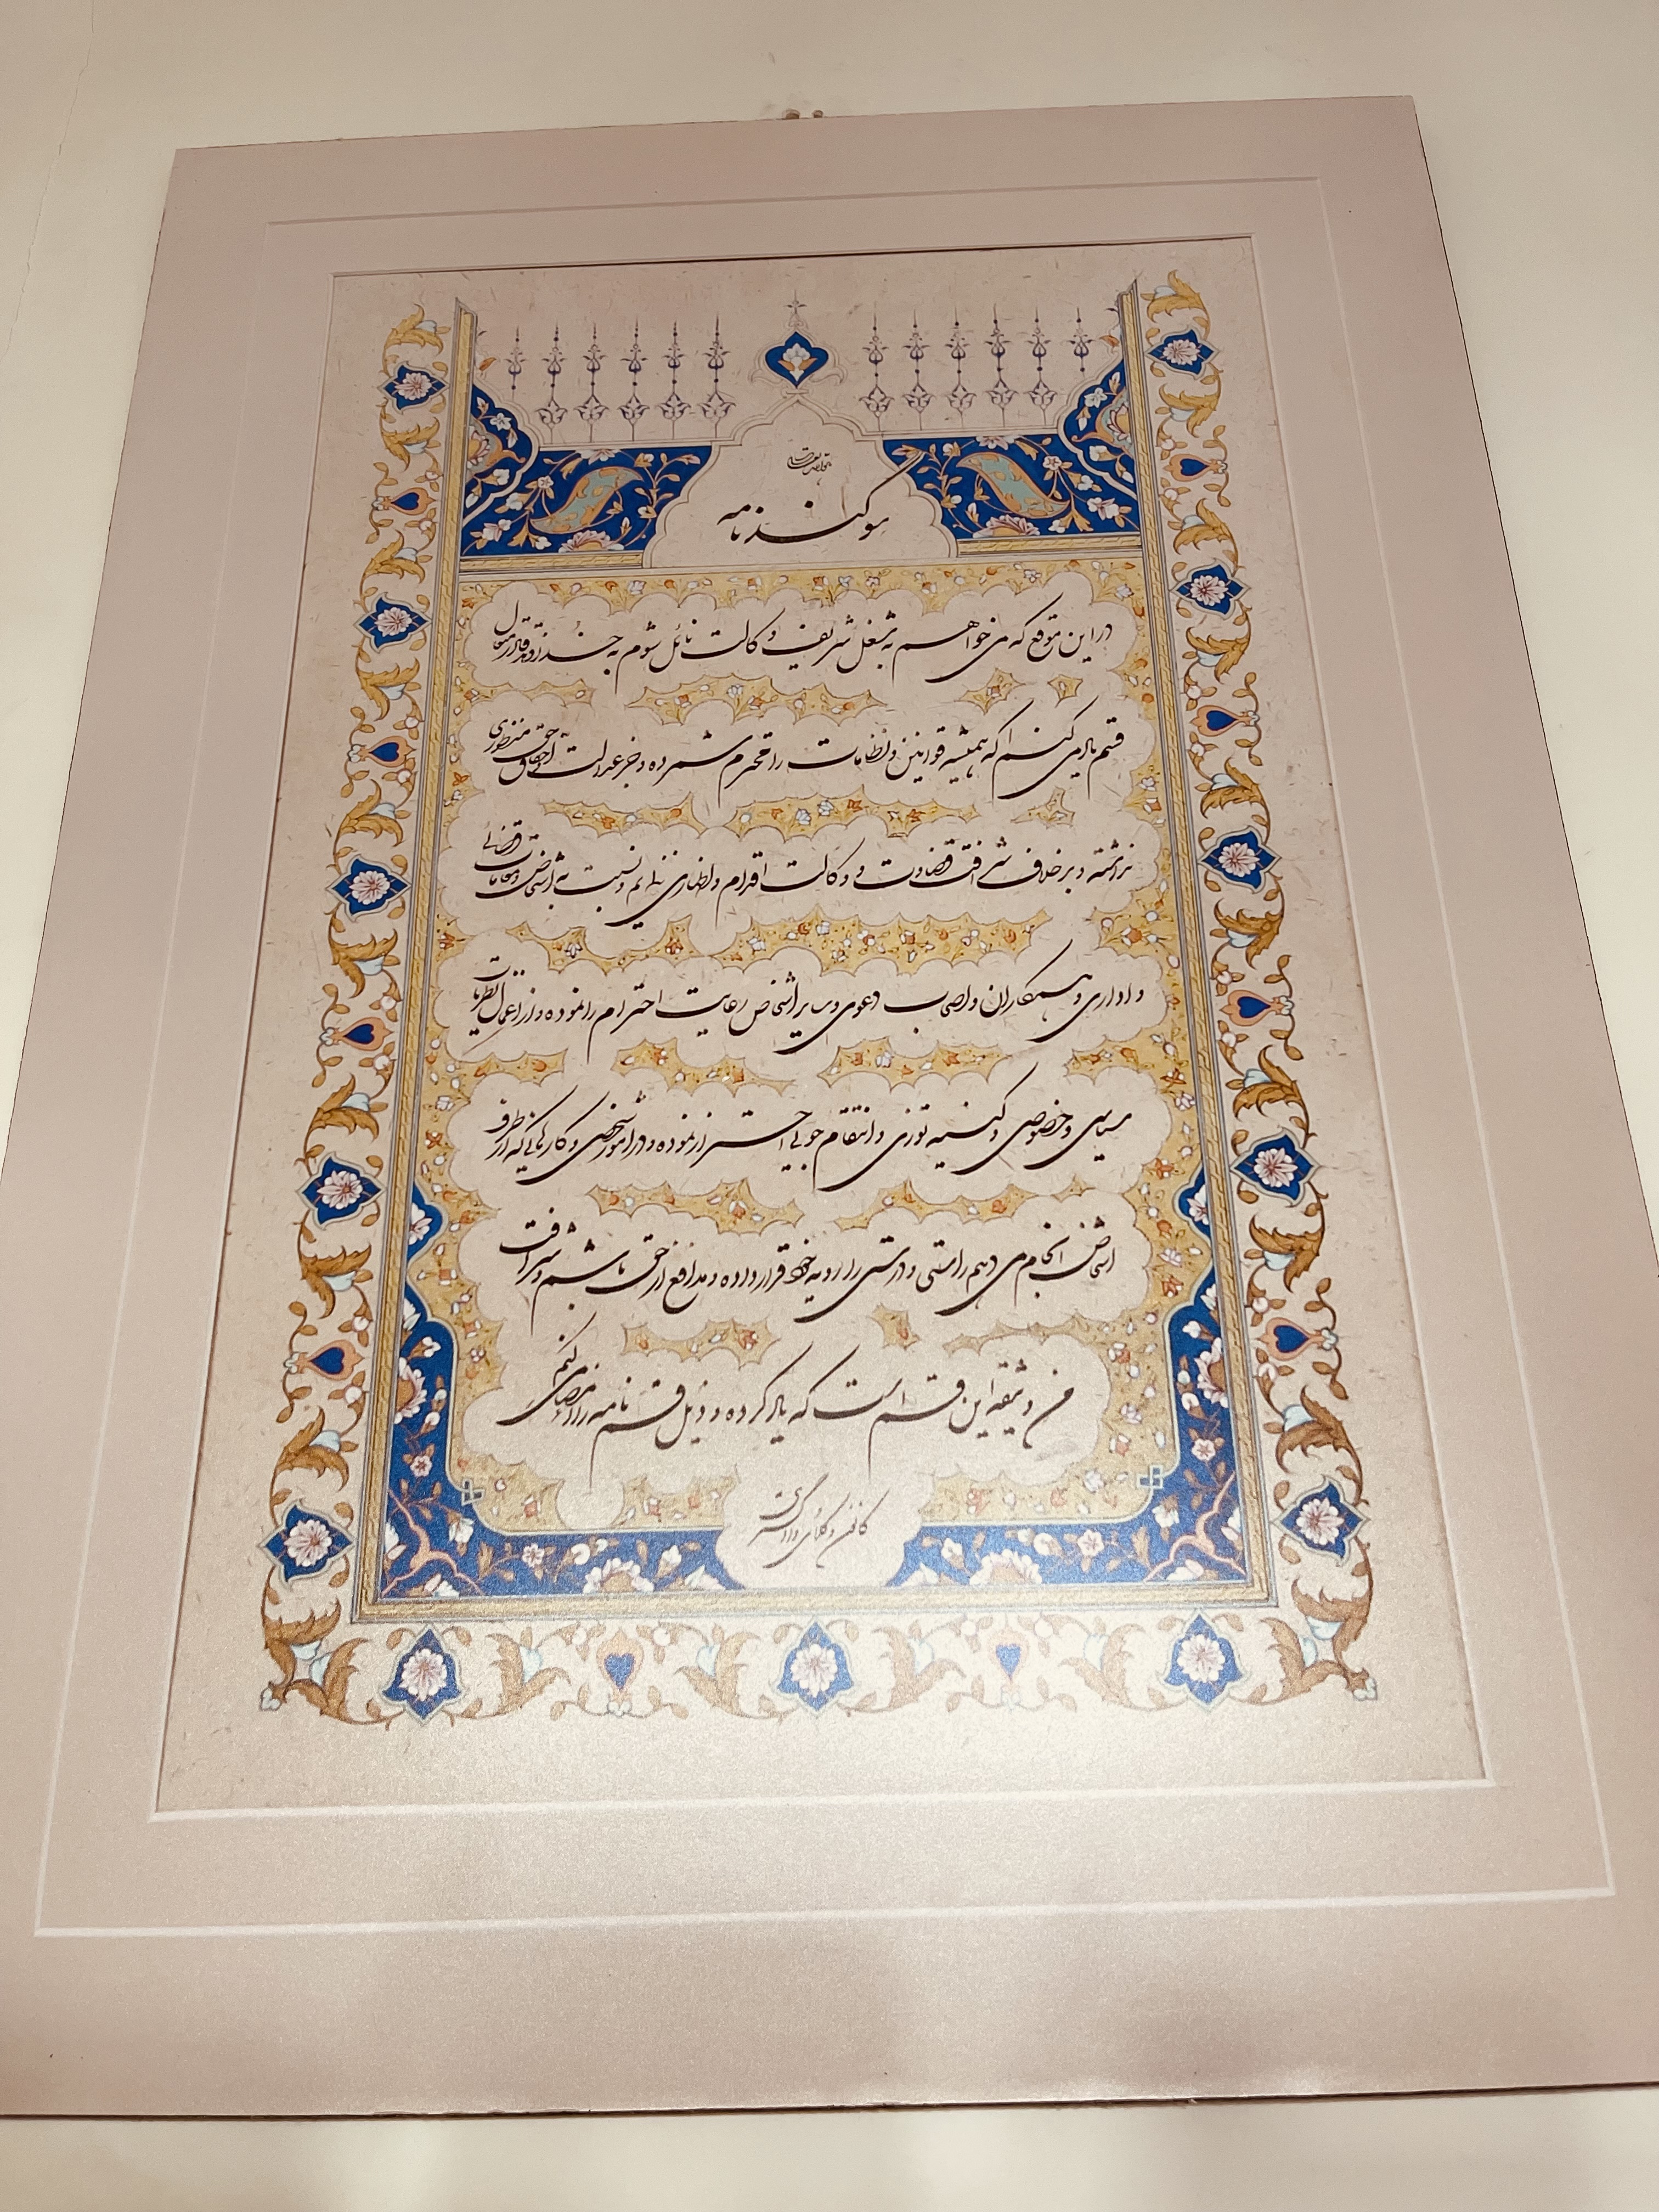 بنام حضرت حق
سوگندنامه
در این موقع که می خواهم به شغل شریف وکالت نائل شوم به خداوند قادر متعال
قسم یاد می کنم که همیشه قوانین و نظامات را محترم شمرده و جز عدالت و احقاق حق منظوری
نداشته و بر خلاف شرافت قضاوت و وکالت اقدام و اظهاری ننمایم و نسبت به اشخاص و مقامات قضائی
و اداری و همکاران و اصحاب دعوی و سایر اشخاص رعایت احترام را نموده و از اعمال نظریات
سیاسی و خصوصی و کینه توزی و انتقام جویی احتراز نموده و در امور شخصی و کارهایی که از طرف
اشخاص انجام می دهم راستی و درستی را رویه خود قرار داده و مدافع از حق باشم و شرافت
من وثیقه این قسم است که یاد کرده و ذیل قسم نامه را امضاء می کنم
کانون وکلای دادگستری